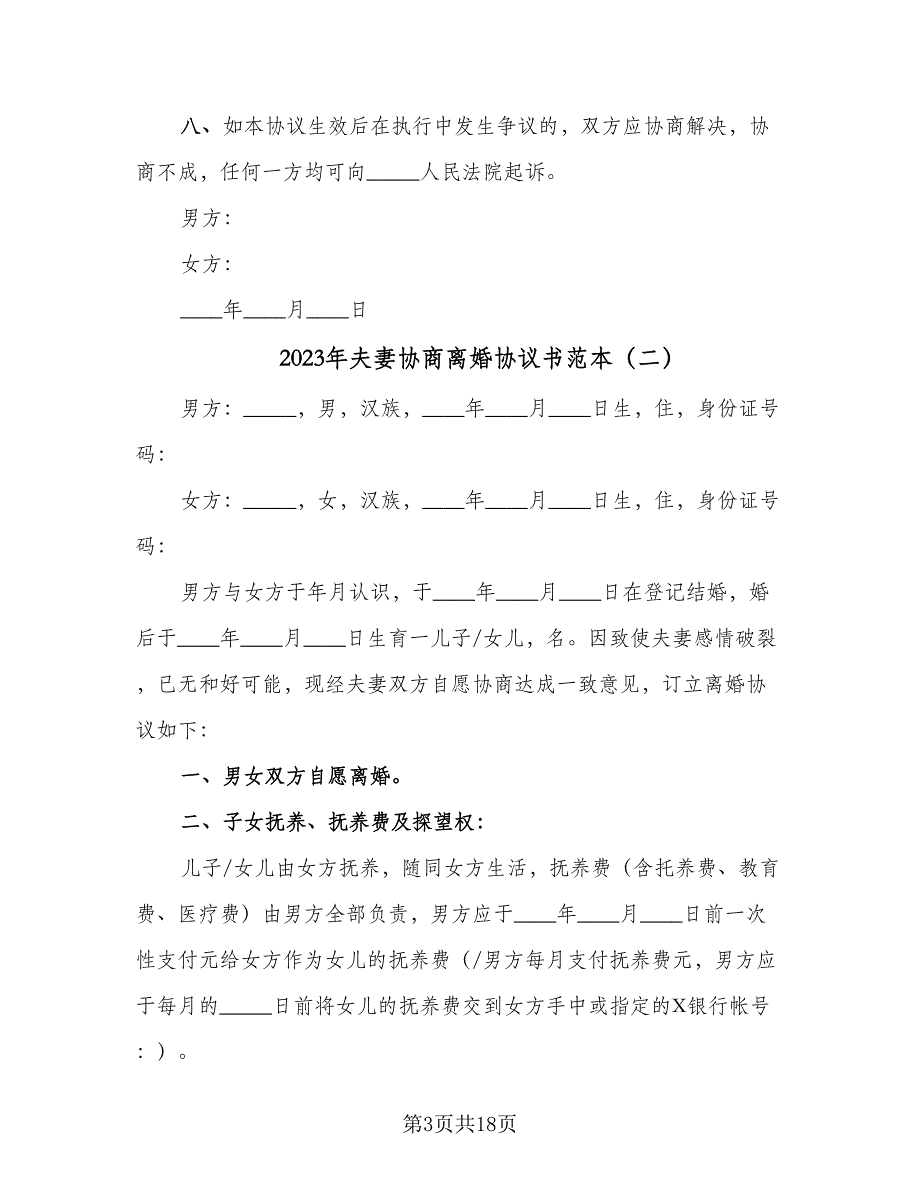 八、如本协议生效后在执行中发生争议的，双方应协商解决，协
商不成，任何一方均可向_____人民法院起诉。
男方：
女方：
____年____月____日
2023年夫妻协商离婚协议书范本（二）
男方：_____，男，汉族，____年____月____日生，住，身份证号
码：
女方：_____，女，汉族，____年____月____日生，住，身份证号
码：
男方与女方于年月认识，于____年____月____日在登记结婚，婚
后于____年____月____日生育一儿子/女儿，名。因致使夫妻感情破裂
，已无和好可能，现经夫妻双方自愿协商达成一致意见，订立离婚协
议如下：
一、男女双方自愿离婚。
二、子女抚养、抚养费及探望权：
儿子/女儿由女方抚养，随同女方生活，抚养费（含托养费、教育
费、医疗费）由男方全部负责，男方应于____年____月____日前一次
性支付元给女方作为女儿的抚养费（/男方每月支付抚养费元，男方应
于每月的_____日前将女儿的抚养费交到女方手中或指定的X银行帐号
：）。
第3页共18页